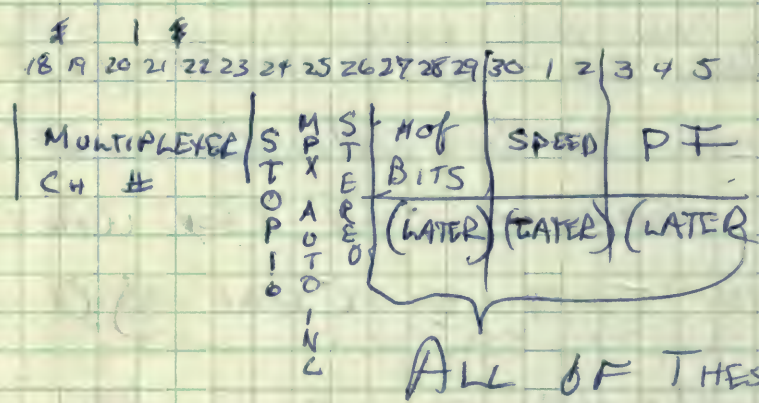 18 19 20 21 22 23 24 25 26 27 28 29 30 1 2 3 4 5
MULTIPLEXER
CH #
STOP 16
MPX AUTO INC
STEREO
# of
BITS
SPEED
PI
(LATER) (LATER) (LATER
ALL OF THES